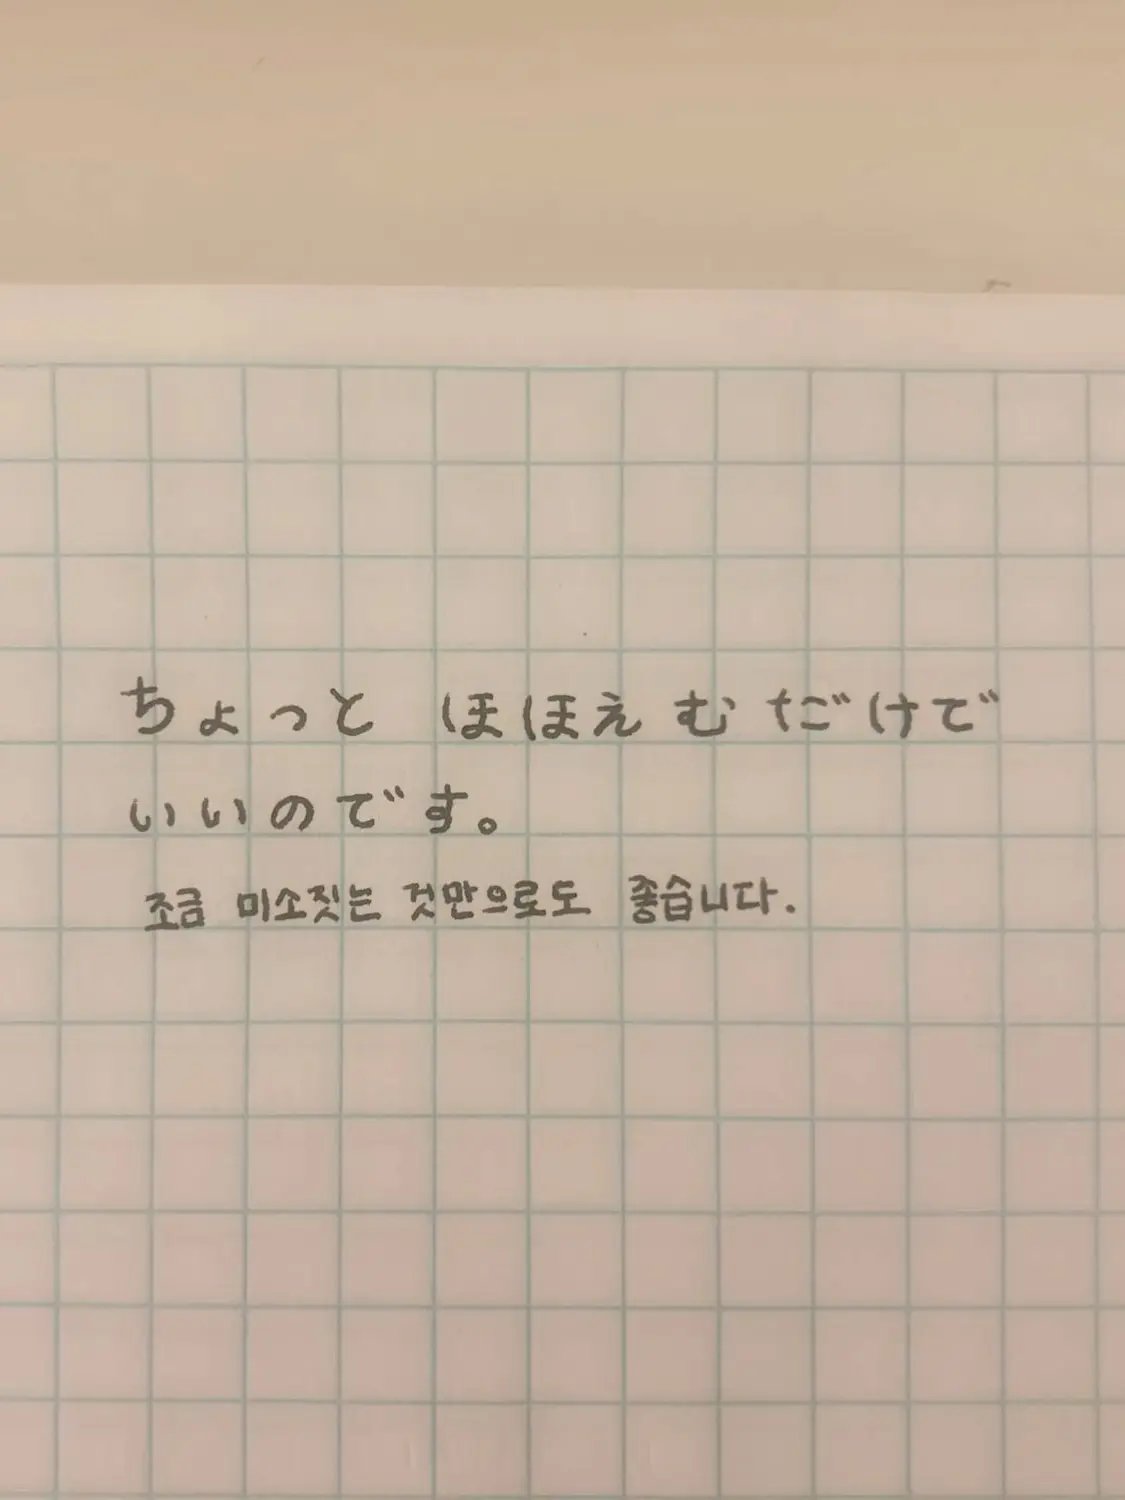 ちょっと ほほえむだけで
いいのです。
조금 미소짓는 것만으로도 좋습니다.